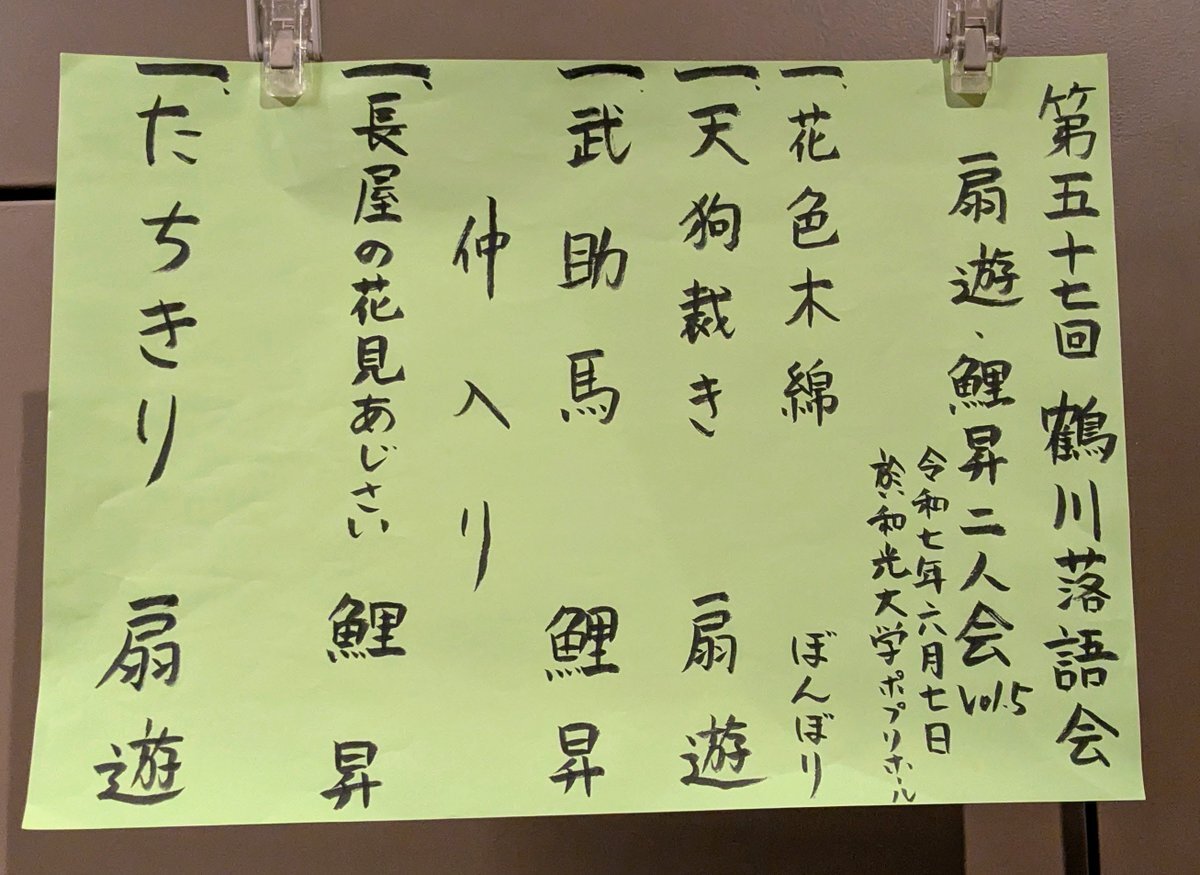 第五十七回 鶴川落語会
扇遊・鯉昇二人会 vol.5
令和七年六月七日
於・和光大学ポプリホール
一、花色木綿 ぼんぼり
一、天狗裁き 扇遊
一、武助馬 鯉昇
仲入り
一、長屋の花見あじさい 鯉昇
一、たちきり 扇遊